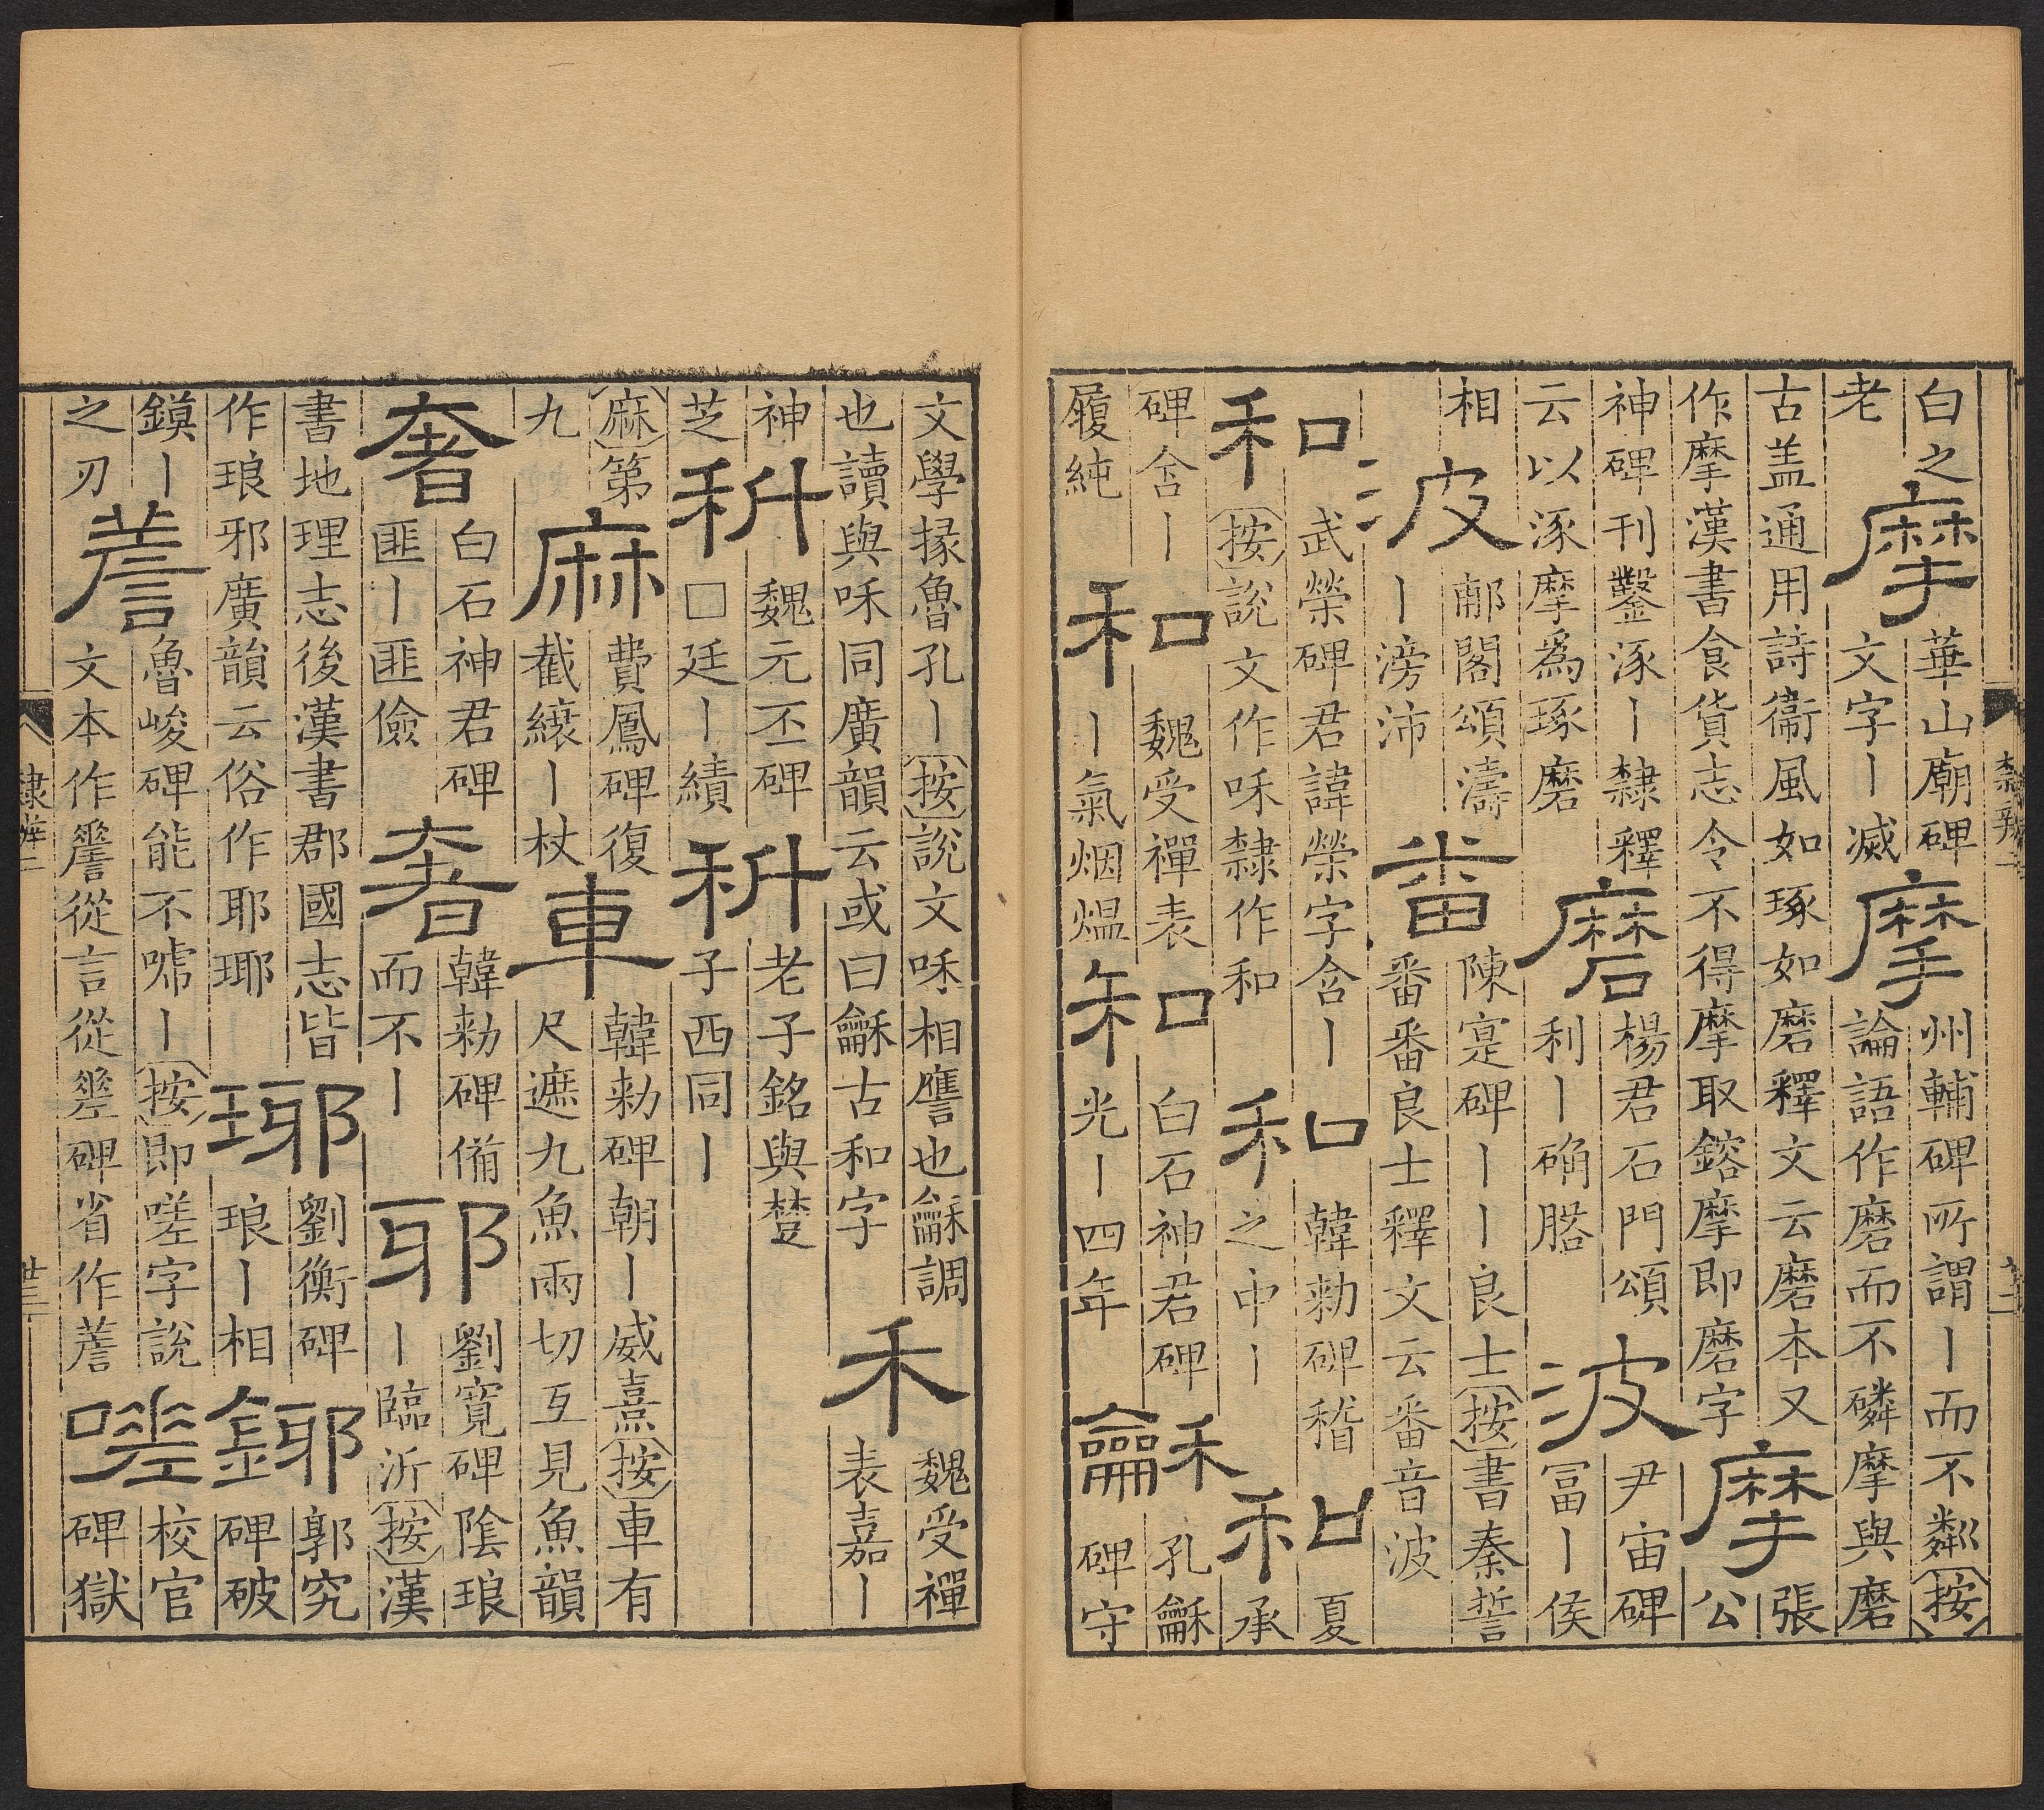 白之
老
摩
華山廟碑
文字丨滅
摩
州輔碑所謂丨而不粼按
論語作磨而不磷摩與磨
古盖通用詩衞風如琢如磨釋文云磨本又
作摩漢書食貨志令不得摩取鎔摩即磨字
摩
張
公
神碑刊鑿涿丨隸釋
云以涿摩爲琢磨
磨
楊君石門頌
利丨确硌
波
尹宙碑
冨丨侯
相
波
郙閣頌濤
丨滂沛
番
陳寔碑丨丨良士按書秦誓
番番良士釋文云番音波
和
武榮碑君諱榮字含丨
按說文作咊隸作和
和
韓勑碑稽
之中丨
和
夏
承
碑含丨
履純
和
魏受禪表
丨氣烟熅
和
白石神君碑
光丨四年
龢
孔龢
碑守
文學掾魯孔丨按說文咊相譍也龢調
也讀與咊同廣韻云或曰龢古和字
禾
魏受禪
表嘉丨
神
芝
科
魏元丕碑
□廷丨績
科
老子銘與楚
子西同丨
麻第
九
麻
費鳳碑復
截縗丨杖
車
韓勑碑朝丨威熹按車有
尺遮九魚兩切互見魚韻
奢
白石神君碑
匪丨匪儉
奢
韓勑碑脩
而不丨
耶
劉寬碑隂琅
丨臨沂按漢
書地理志後漢書郡國志皆
作琅邪廣韻云俗作耶瑘
瑘
劉衡碑
琅丨相
釾
郭究
碑破
鏌丨
之刃
𧨳
魯峻碑能不嘑丨按即嗟字說
文本作𧪘從言從𠂹碑省作𧨳
嗟
校官
碑獄
隸辨二
卅三